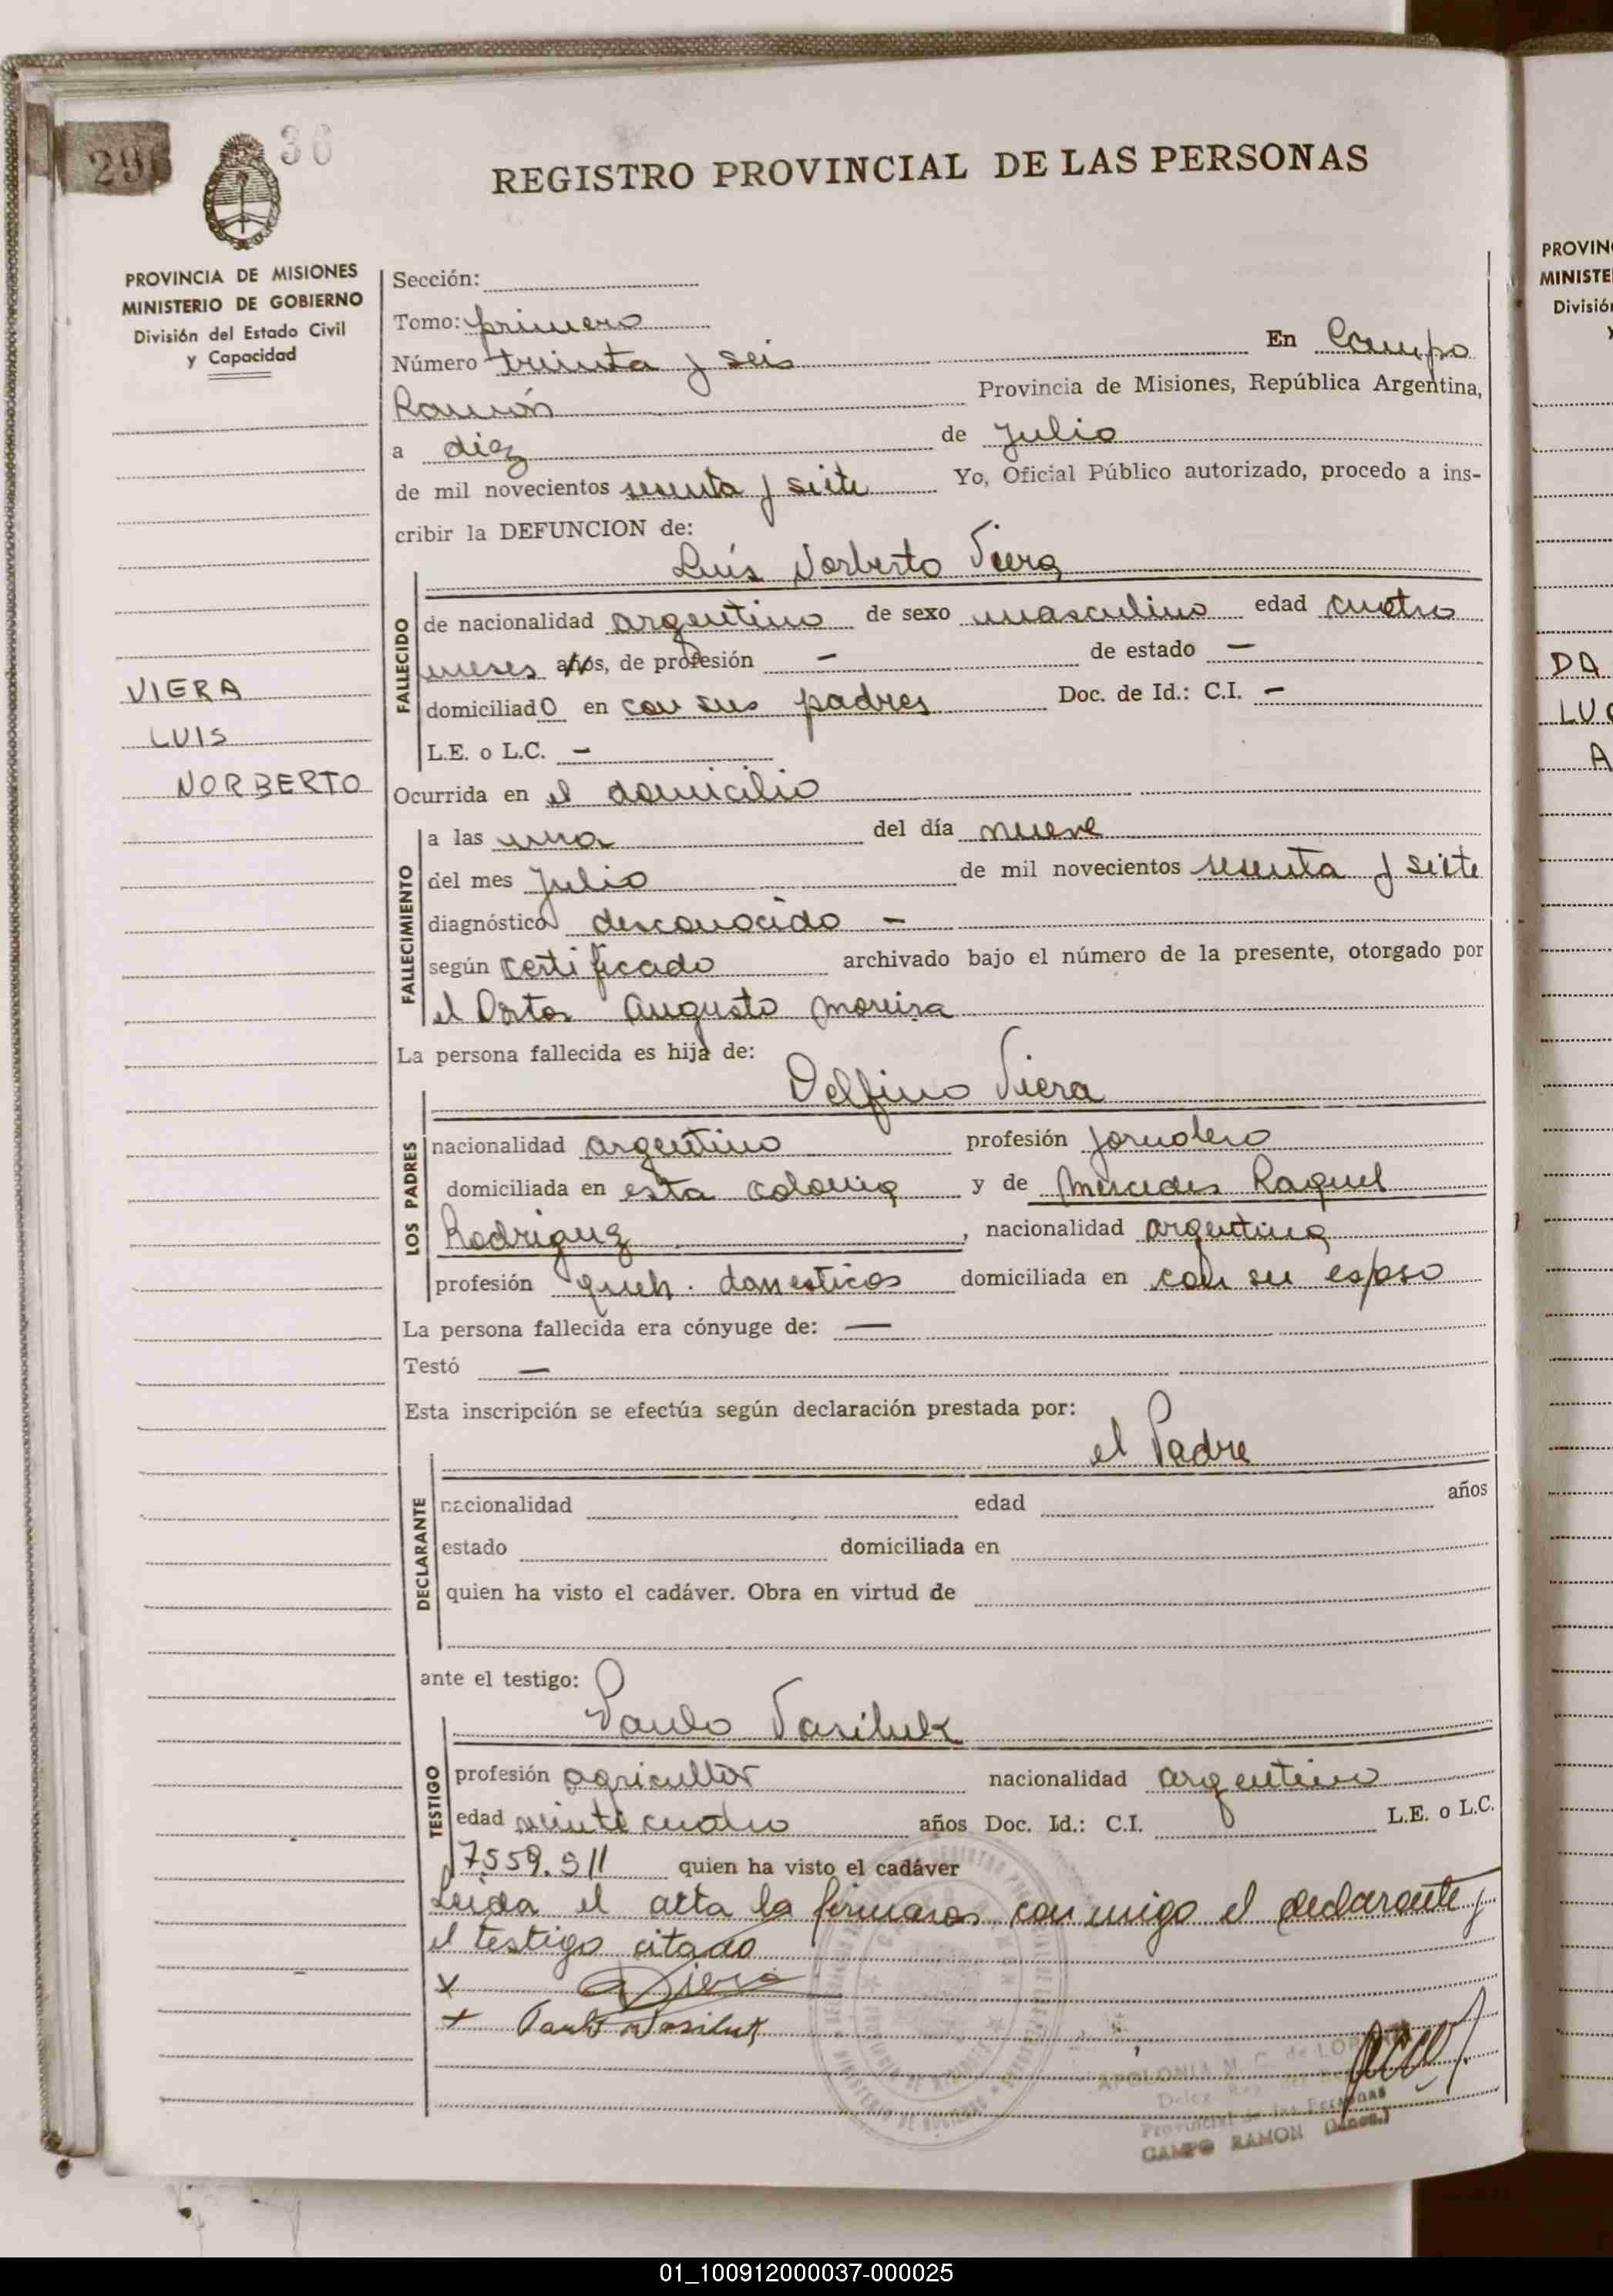 296
36
REGISTRO PROVINCIAL DE LAS PERSONAS
PROVINCIA DE MISIONES
MINISTERIO DE GOBIERNO
División del Estado Civil
y Capacidad
Sección:
Tomo: primero
Número treinta y seis En Campo
Ramón Provincia de Misiones, República Argentina,
a diez de Julio
de mil novecientos sesenta y siete Yo, Oficial Público autorizado, procedo a ins-
cribir la DEFUNCION de:
Luis Norberto Viera
FALLECIDO
de nacionalidad argentino de sexo masculino edad cuatro
meses años, de profesión — de estado —
domiciliado en con sus padres Doc. de Id.: C.I. —
L.E. o L.C. —
VIERA
LUIS
NORBERTO
Ocurrida en el domicilio
FALLECIMIENTO
a las una del día nueve
del mes Julio de mil novecientos sesenta y siete
diagnóstico desconocido —
según certificado archivado bajo el número de la presente, otorgado por
el Augusto Moreira
La persona fallecida es hija de:
Delfino Viera
LOS PADRES
nacionalidad argentino profesión jornalero
domiciliada en esta colonia y de Mercedes Raquel
Rodriguez, nacionalidad argentina
profesión queh. domesticos domiciliada en con su esposo
La persona fallecida era cónyuge de: —
Testó —
Esta inscripción se efectúa según declaración prestada por:
el Padre
DECLARANTE
nacionalidad edad años
estado domiciliada en
quien ha visto el cadáver. Obra en virtud de
ante el testigo:
Paulo Vasiluk
TESTIGO
profesión agricultor nacionalidad argentino
edad veinticuatro años Doc. Id.: C.I. L.E. o L.C.
7559.911 quien ha visto el cadáver
Leida el acta la firmaron conmigo el declarante y
el testigo citado
x Viera
x Paulo Vasiluk
APOLONIA M. C. de
Provincial de las Personas
CAMPO RAMON (Mnes.)
PROVIN
MINISTE
División
y
DA
LU
A
01_100912000037-000025